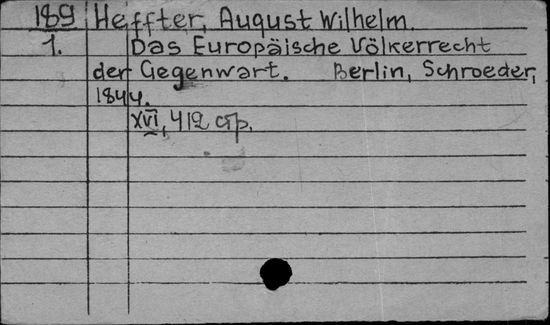 189 Heffter, August Wilhelm.
1. Das Europäische Völkerrecht
der Gegenwart. Berlin, Schroeder,
1844.
XVI, 412 стр.